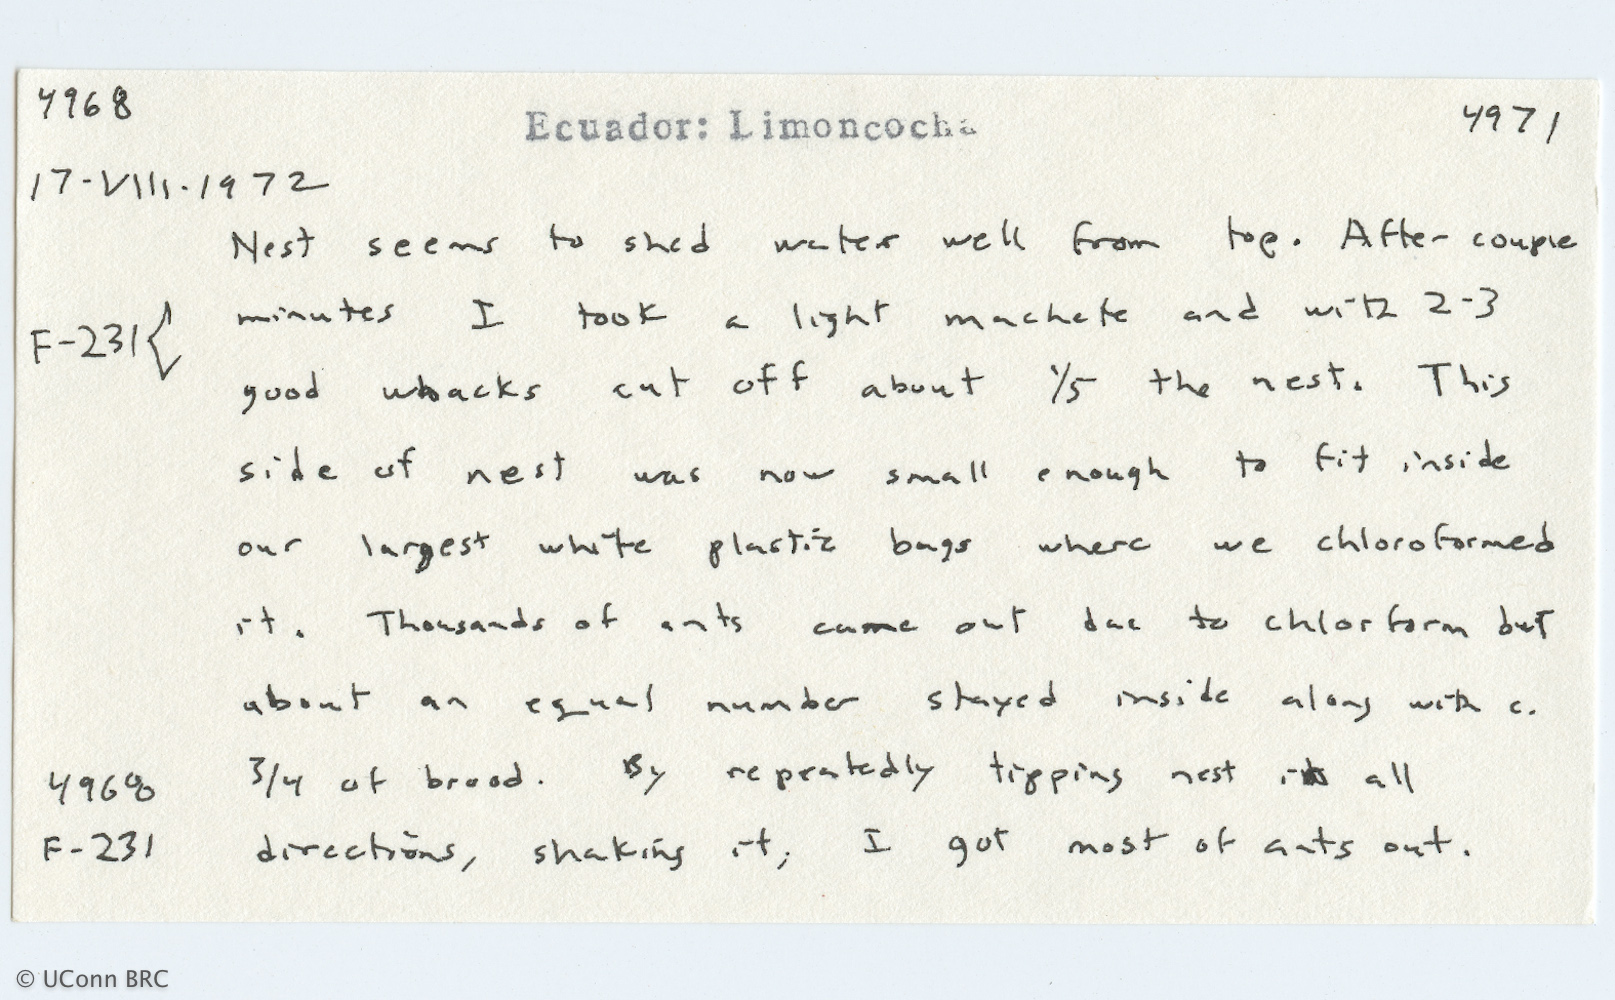 4968 Ecuador: Limoncocha 4971
17-VIII-1972
Nest seems to shed water well from top. After couple
F-231{ minutes I took a light machete and with 2-3
good whacks cut off about 1/5 the nest. This
side of nest was now small enough to fit inside
our largest white plastic bags where we chloroformed
it. Thousands of ants came out due to chlorform but
about an equal number stayed inside along with c.
4968 3/4 of brood. By repeatedly tipping nest in all
F-231 directions, shaking it, I got most of ants out.
© UConn BRC